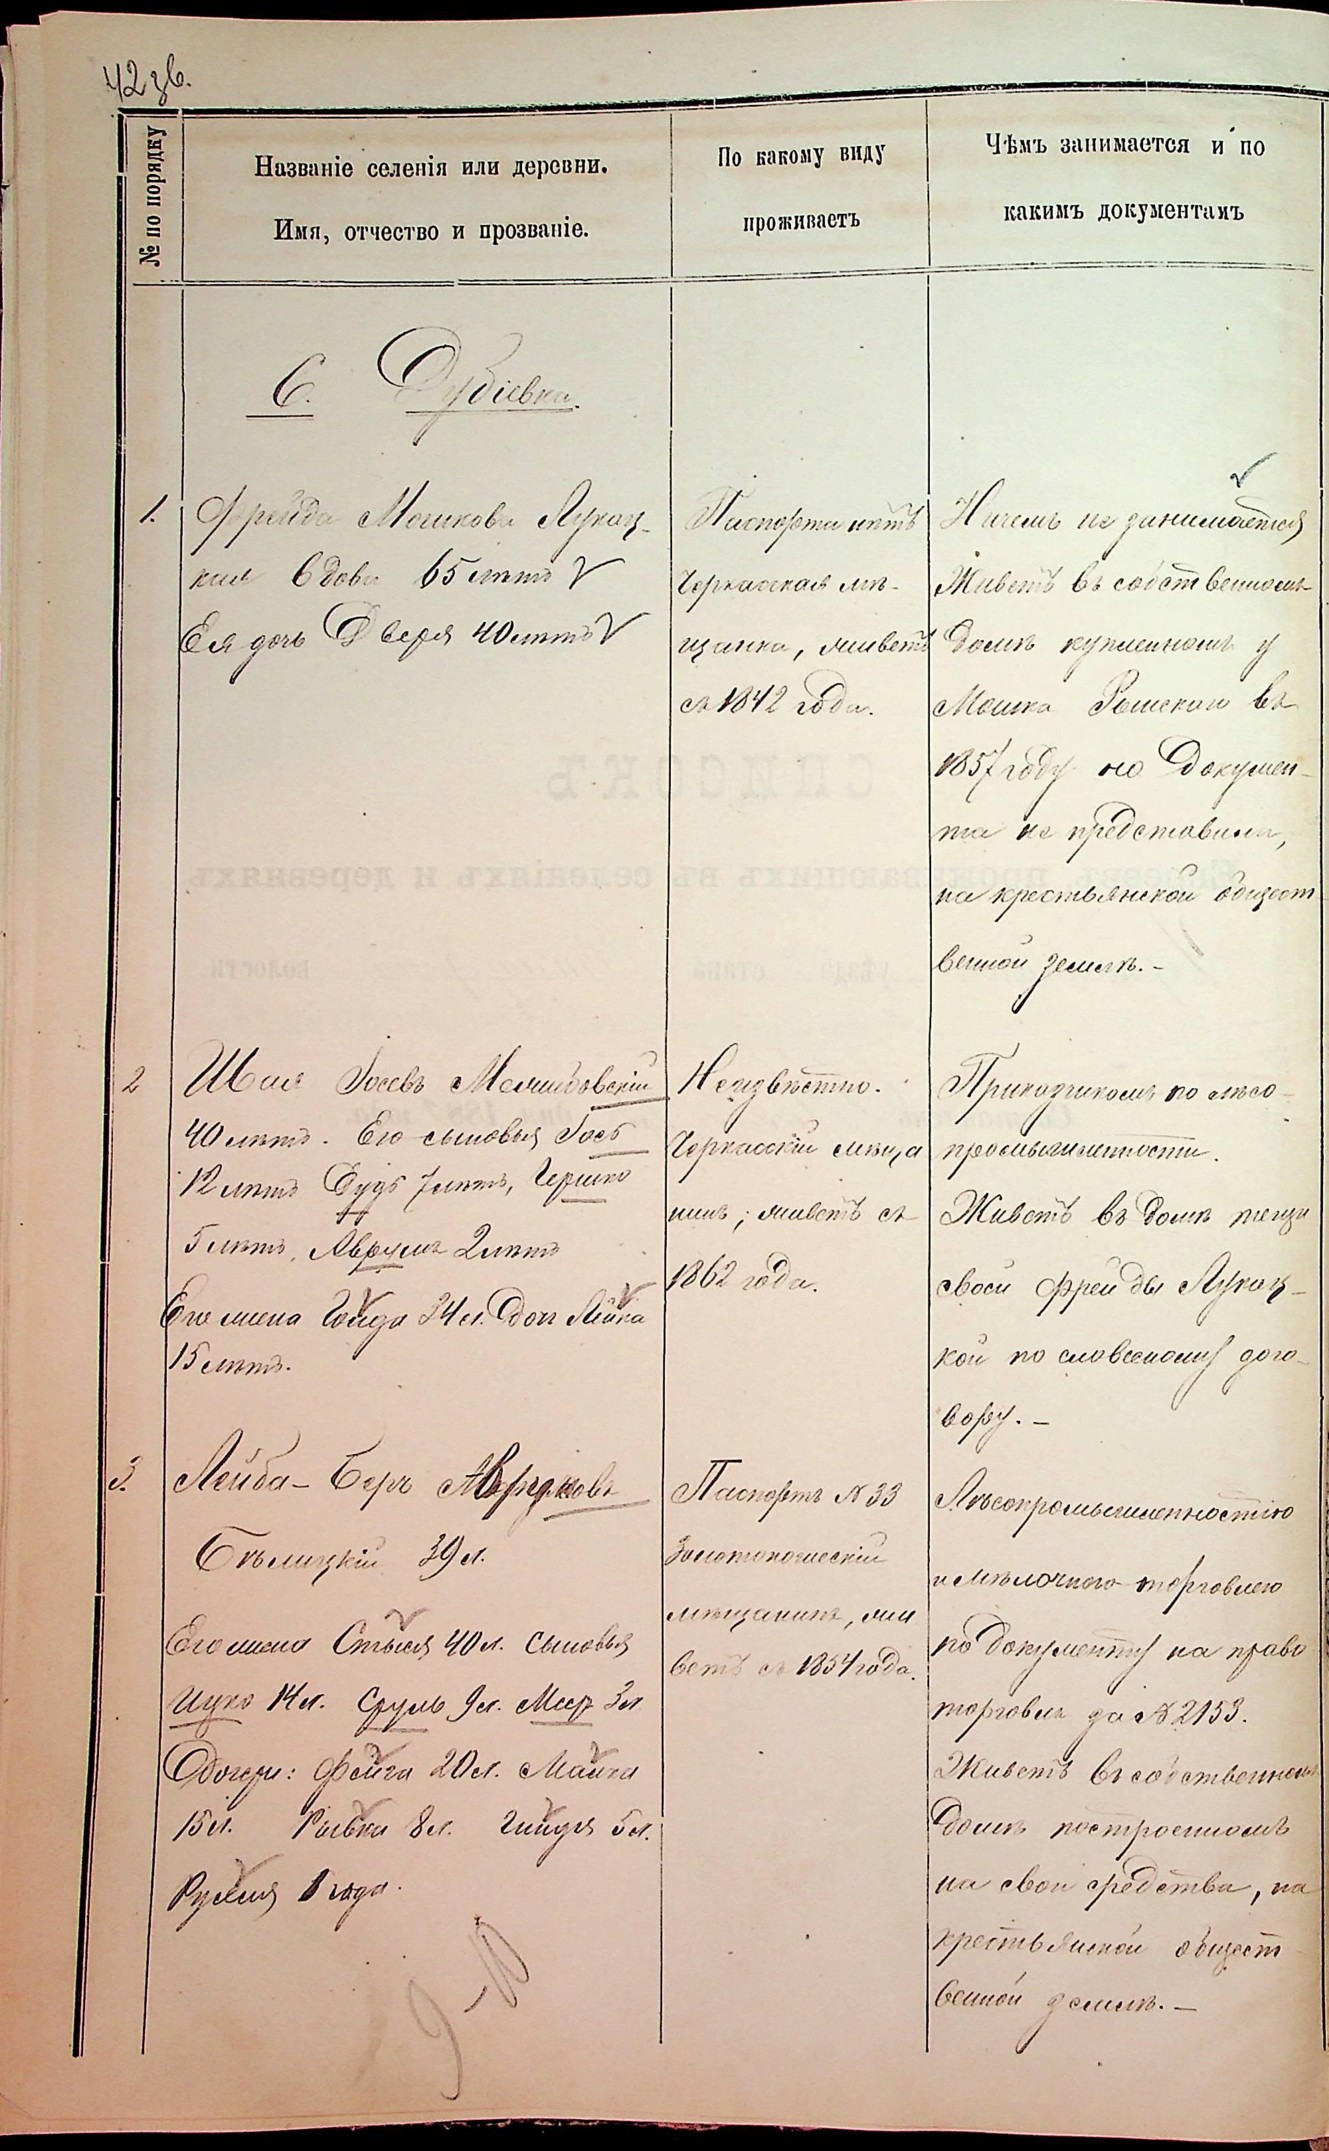 42 зв.
№ по порядку
Названіе селенія или деревни.
Имя, отчество и прозваніе.
По какому виду
проживаетъ
Чѣмъ занимается и по
какимъ документамъ
С. Дубіевка
1.
Фрейда Мошкова Лукац-
кая вдова 65 лѣтъ
Ея дочь Двейря 40 лѣтъ
Паспорта нѣтъ
Черкасская мѣ-
щанка, живетъ
съ 1842 года.
Ничемъ не занимается
Живетъ въ собственномъ
домѣ купленномъ у
Мошка
въ
1857 году но докумен-
та не представила,
на крестьянской общест
венной землѣ. -
2
Шая Іосевъ
40 лѣтъ. Его сыновья Іось
12 лѣтъ Дудь 7 лѣтъ, Гершко
5 лѣтъ, Аврумъ 2 лѣтъ
Его жена
34 л. доч Лейка
15 лѣтъ.
Неизвѣстно.
Черкасскій мѣща
нинъ, живетъ съ
1862 года.
Приказчикомъ по лѣсо-
промышленности.
Живетъ въ домѣ тещи
своей Фрейды Лукац-
кой по словесному дого-
вору. -
3.
Лейба-Беръ Аврумовъ
Бѣлицкій 39 л.
Его жена
40 л. сыновья
Ицко 14 л. Сруль 9 л. Меер 3 л
Дочери: Фейга 20 л. Малка
15 л. Рывка 8 л.
5 л.
1 года.
Паспортъ № 33
Золотоношескій
мѣщанинъ, жи
ветъ съ 1854 года.
Лѣсопромышленностію
и мѣлочною торговлею
по документу на право
торговли за № 2153.
Живетъ въ собственномъ
домѣ построенномъ
на свои средства, на
крестьянской общест
венной землѣ. -
9-10